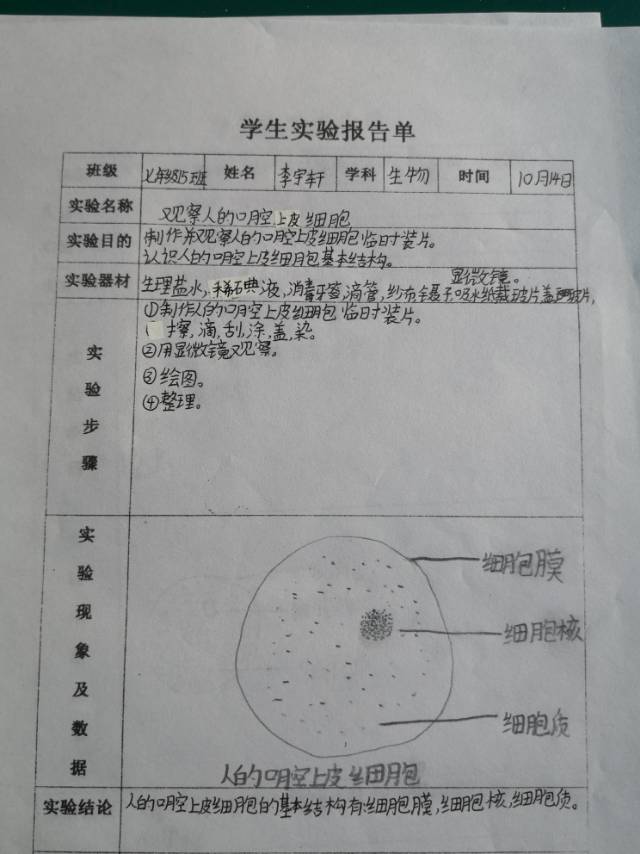 学生实验报告单
班级 七年级15班 姓名 李宇轩 学科 生物 时间 10月14日
实验名称 观察人的口腔上皮细胞
实验目的 制作并观察人的口腔上皮细胞临时装片。
认识人的口腔上皮细胞基本结构。
显微镜。
实验器材 生理盐水,稀碘液,消毒牙签,滴管,纱布,镊子,吸水纸,载玻片,盖玻片,
实验步骤
①制作人的口腔上皮细胞临时装片。
(擦,滴,刮,涂,盖,染。
②用显微镜观察。
③绘图。
④整理。
实验现象及数据
细胞膜
细胞核
细胞质
人的口腔上皮细胞
实验结论 人的口腔上皮细胞的基本结构有:细胞膜,细胞核,细胞质。